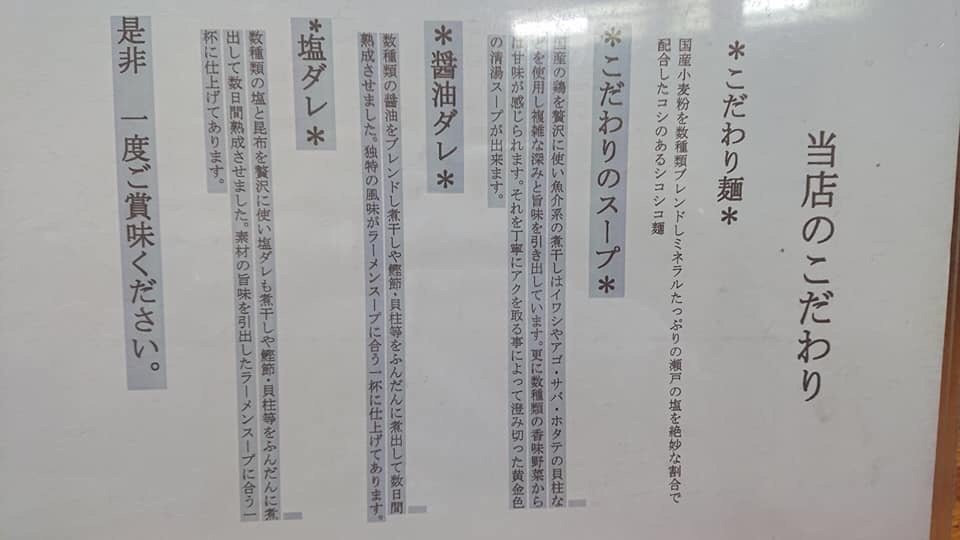 当店のこだわり
＊こだわり麺＊
国産小麦粉を数種類ブレンドしミネラルたっぷりの瀬戸の塩を絶妙な割合で
配合したコシのあるシコシコ麺
＊こだわりのスープ＊
国産の鶏を贅沢に使い魚介系の煮干しはイワシやアゴ・サバ・ホタテの貝柱な
どを使用し複雑な深みと旨味を引き出しています。更に数種類の香味野菜から
は甘味が感じられます。それを丁寧にアクを取る事によって澄み切った黄金色
の清湯スープが出来ます。
＊醤油ダレ＊
数種類の醤油をブレンドし煮干しや鰹節・貝柱等をふんだんに煮出して数日間
熟成させました。独特の風味がラーメンスープに合う一杯に仕上げてあります。
＊塩ダレ＊
数種類の塩と昆布を贅沢に使い塩ダレも煮干しや鰹節・貝柱等をふんだんに煮
出して数日間熟成させました。素材の旨味を引出したラーメンスープに合う一
杯に仕上げてあります。
是非　一度ご賞味ください。